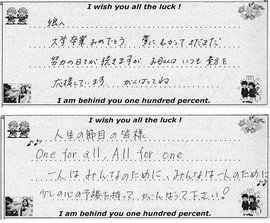 I wish you all the luck !
娘へ
大学卒業おめでとう 夢にむかってまだまだ
努力の日々が続きますが お母さんはいつも貴方を
応援しています がんばってね
I am behind you one hundred percent.
I wish you all the luck !
人生の節目の皆様
One for all, All for one
一人はみんなのために、みんなは一人のために
少しの心の予裕を持って、がんばって下さい!
I am behind you one hundred percent.